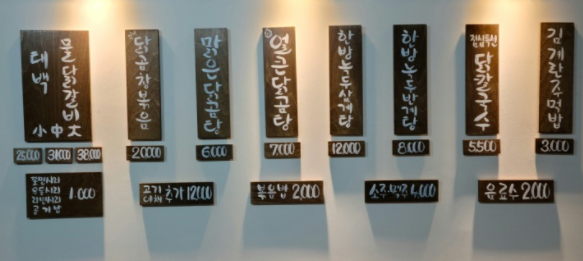 태백
물닭갈비
小 中 大
25,000 31,000 38,000
닭곰창볶음
20,000
맑은닭곰탕
6,000
얼큰닭곰탕
7,000
한방녹두삼계탕
12,000
한방녹두반계탕
8,000
점심특선
닭칼국수
5,500
김계란주먹밥
3,000
쫄면사리
우동사리
라면사리
공기밥
1,000
고기
야채
추가 12,000
볶음밥 2,000
소주.맥주 4,000
음료수 2,000